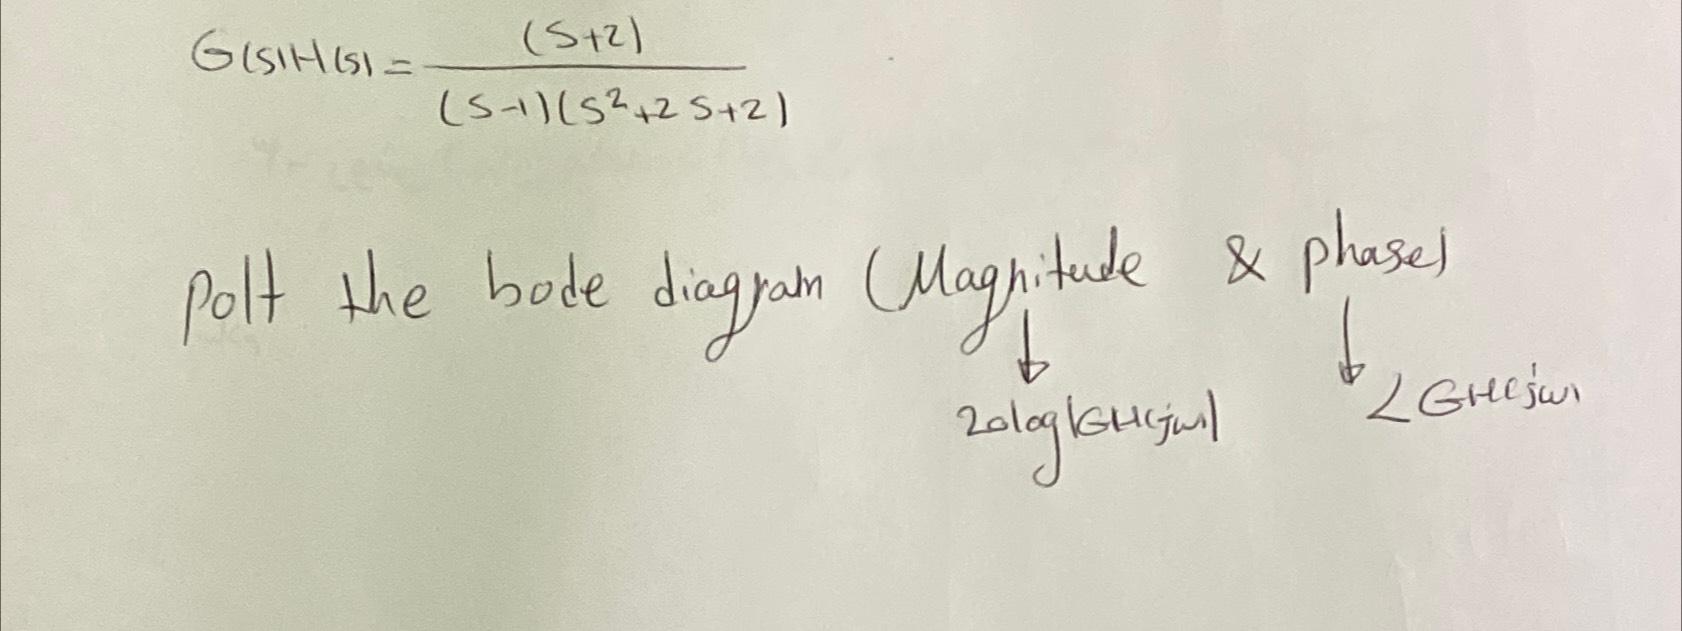 G(s)H(s) = (S+2)
(S-1)(S²+2S+2)
Polt the bode diagram (Magnitude & phase)
20log|GH(jw)| ∠GH(jw)